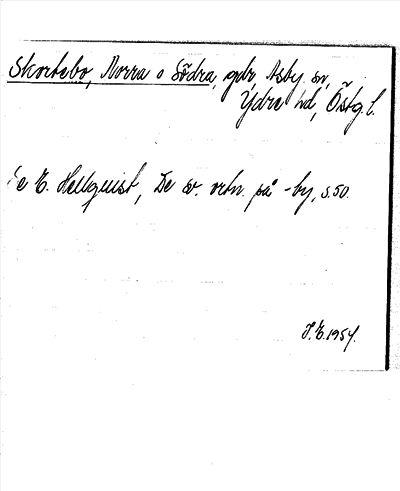 Skortebo, Norra o Södra, gdr, Asby sn,
Ydre hd, Östg. l.
Se E. Hellquist, De sv. ortn. på -by, s. 50.
J. E. 1954.